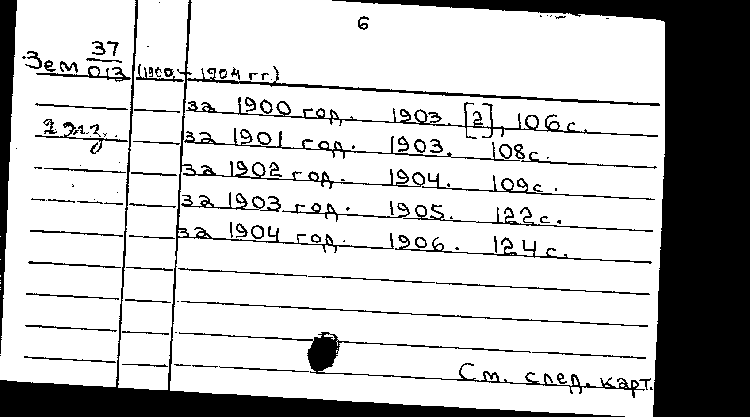 6
Зем 37/013 (1900 – 1904 гг.)
за 1900 год. 1903. [2], 106 с.
1 экз. за 1901 год. 1903. 108 с.
за 1902 год. 1904. 109 с.
за 1903 год. 1905. 122 с.
за 1904 год. 1906. 124 с.
См. след. карт.